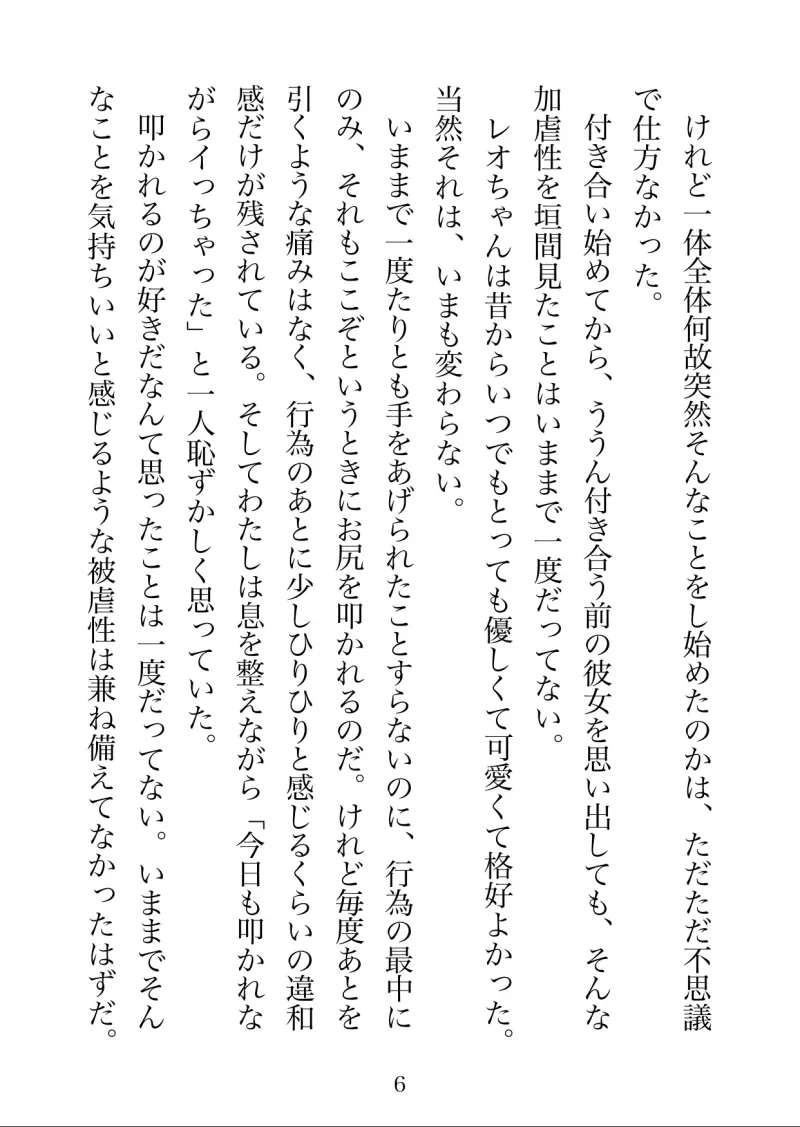 けれど一体全体何故突然そんなことをし始めたのかは、ただただ不思議
で仕方なかった。
付き合い始めてから、ううん付き合う前の彼女を思い出しても、そんな
加虐性を垣間見たことはいままで一度だってない。
レオちゃんは昔からいつでもとっても優しくて可愛くて格好よかった。
当然それは、いまも変わらない。
いままで一度たりとも手をあげられたことすらないのに、行為の最中に
のみ、それもここぞというときにお尻を叩かれるのだ。けれど毎度あとを
引くような痛みはなく、行為のあとに少しひりひりと感じるくらいの違和
感だけが残されている。そしてわたしは息を整えながら「今日も叩かれな
がらイっちゃった」と一人恥ずかしく思っていた。
叩かれるのが好きだなんて思ったことは一度だってない。いままでそん
なことを気持ちいいと感じるような被虐性は兼ね備えてなかったはずだ。
6